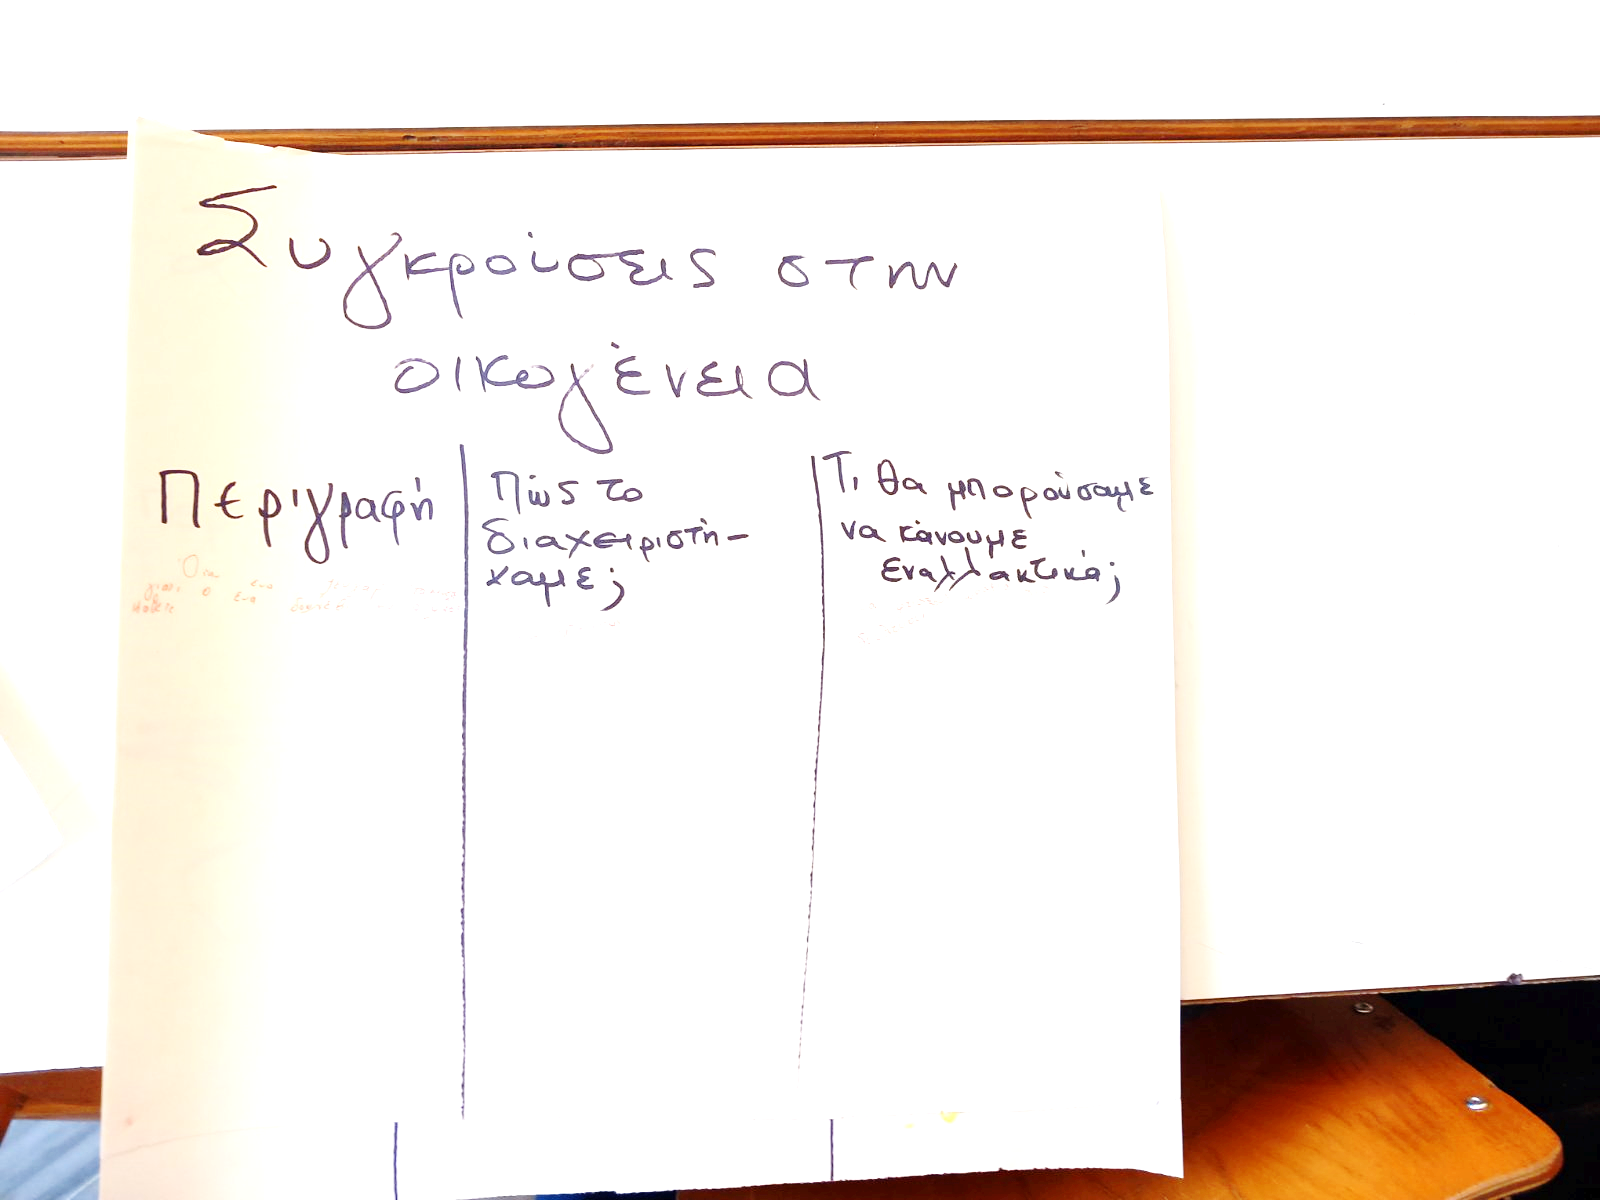 Συγκρούσεις στην
οικογένεια
Περιγραφή
Πώς το
διαχειριστή-
καμε;
Τι θα μπορούσαμε
να κάνουμε
εναλλακτικά;